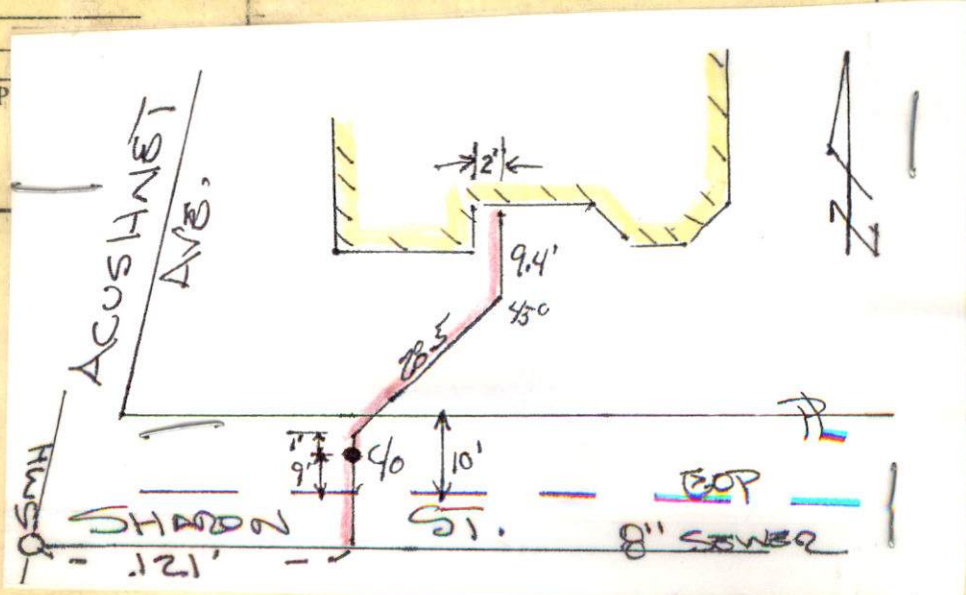 P
ACUSHNET
AVE.
2'
9.4'
45°
28.5
N
1'
9'
C/O
10'
EOP
SMH
SHARON ST.
8" SEWER
121'